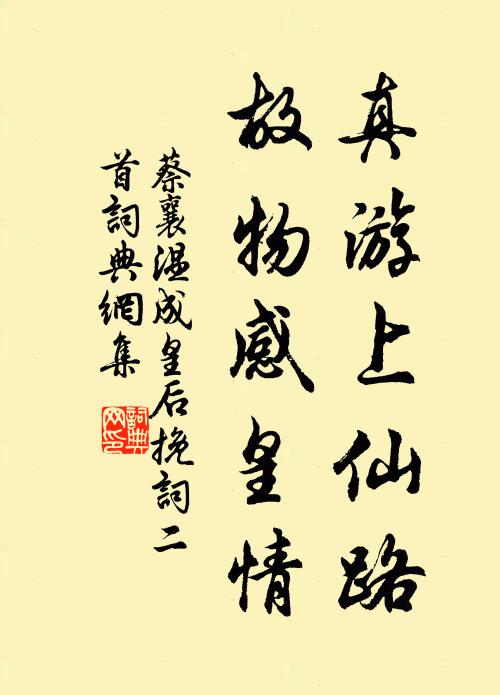 真游上仙路
故物感皇情
蔡襄温成皇后挽詞二
首詞典網集
詞典
网印